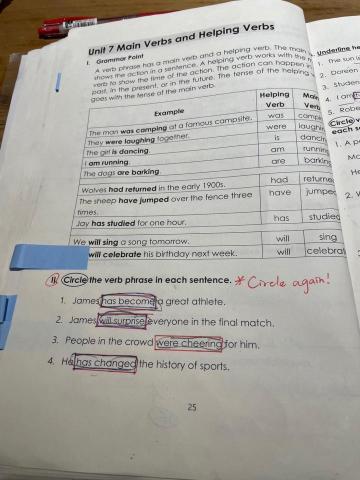 Unit 7 Main Verbs and Helping Verbs
I. Grammar Point
A verb phrase has a main verb and a helping verb. The main
shows the action in a sentence. A helping verb works with the
verb to show the time of the action. The action can happen
past, in the present, or in the future. The tense of the helping
goes with the tense of the main verb.
Example Helping Verb Main Verb
The man was camping at a famous campsite. was camp
They were laughing together. were laughi
The girl is dancing. is dancin
I am running. am runnin
The dogs are barking. are barkin
Wolves had returned in the early 1900s. had returne
The sheep have jumped over the fence three have jumpe
times.
Jay has studied for one hour. has studied
We will sing a song tomorrow. will sing
will celebrate his birthday next week. will celebrat
II. Circle the verb phrase in each sentence. * Circle again!
1. James has become a great athlete.
2. James will surprise everyone in the final match.
3. People in the crowd were cheering for him.
4. He has changed the history of sports.
25
Underline he
1. The sun
2. Doreen
3. Studen
4. I am
5. Robe
Circle
each
1. A p
2.